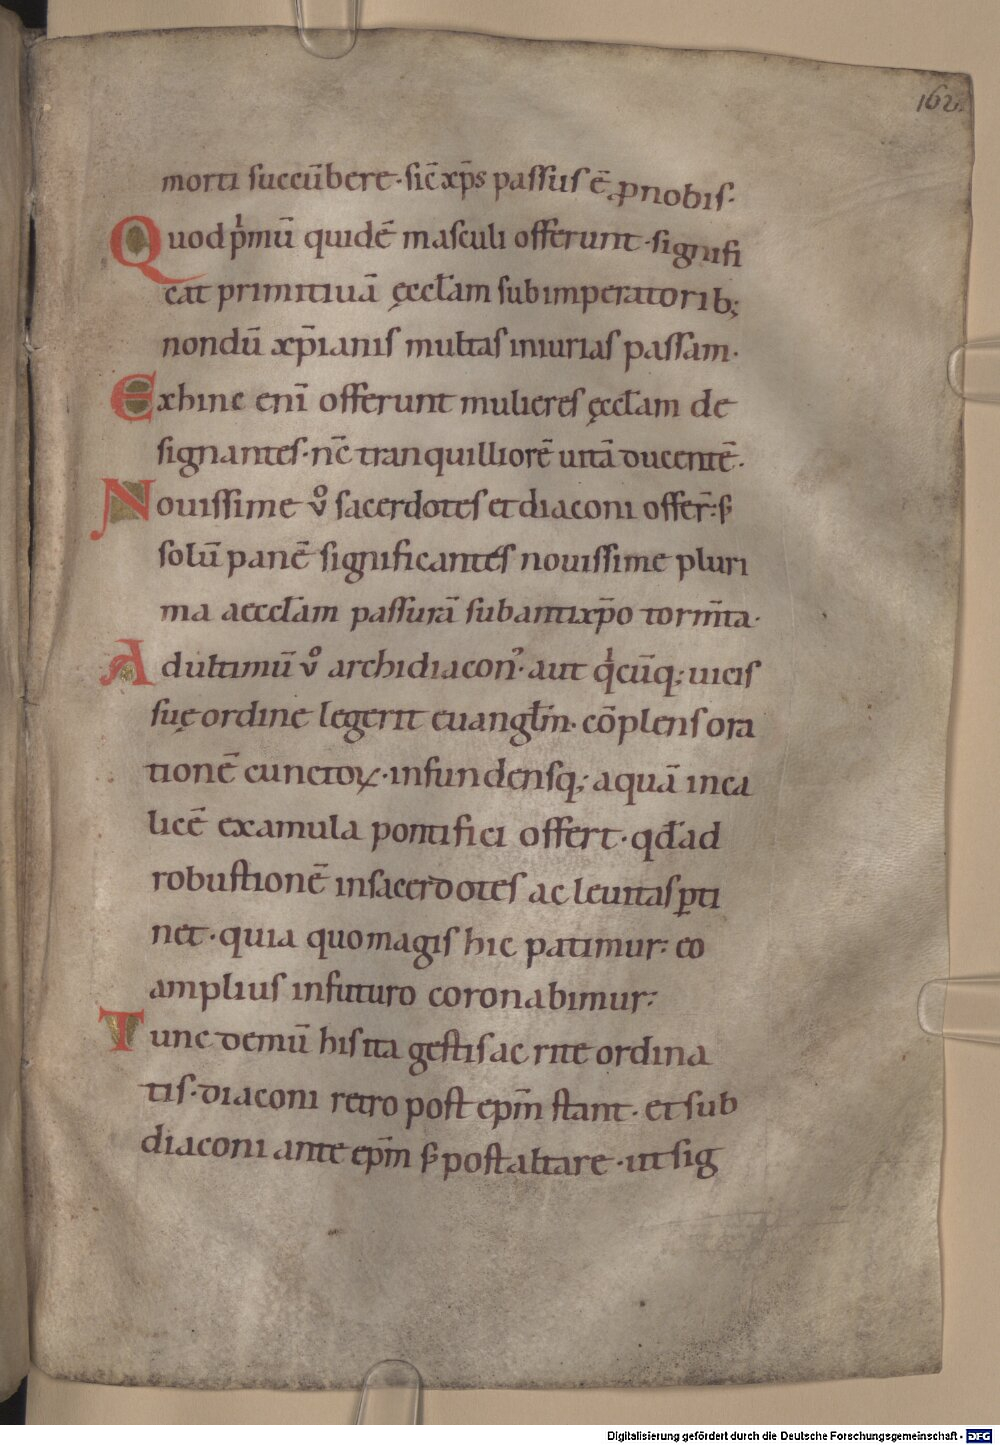 162.
morti succūbere·sic̄ xp̄s passus ē ꝓ nobis·
Quod pͥmū quidē masculi offerunt·signifi
cat primitiuā ęccłam sub imperatorib;
nondū xp̄ianis multas iniurias passam·
Exhinc enī offerunt mulieres ęccłam de
signantes·nc̄ tranquilliorē uitā ducentē·
Nouissime v̊ sacerdotes et diaconi offer̄·s̄
solū panē significantes nouissime pluri
ma aeccłam passurā sub antixp̄o torm̄ta·
Ad ultimū v̊ archidiacon᾿·aut qͥcūq; uicis
suę ordine legerit euangłm·cōplens ora
tionē cunctoꝝ·infundensq; aquā in ca
licē ex amula pontifici offert·qđ ad
robustionē in sacerdotes ac leuitas ꝑti
net·quia quo magis hic patimur: eo
amplius in futuro coronabimur:
Tunc demū his ita gestis ac rite ordina
tis·diaconi retro post epm̄ stant·et sub
diaconi ante epm̄ s̄ post altare·ut sig
Digitalisierung gefördert durch die Deutsche Forschungsgemeinschaft - DFG